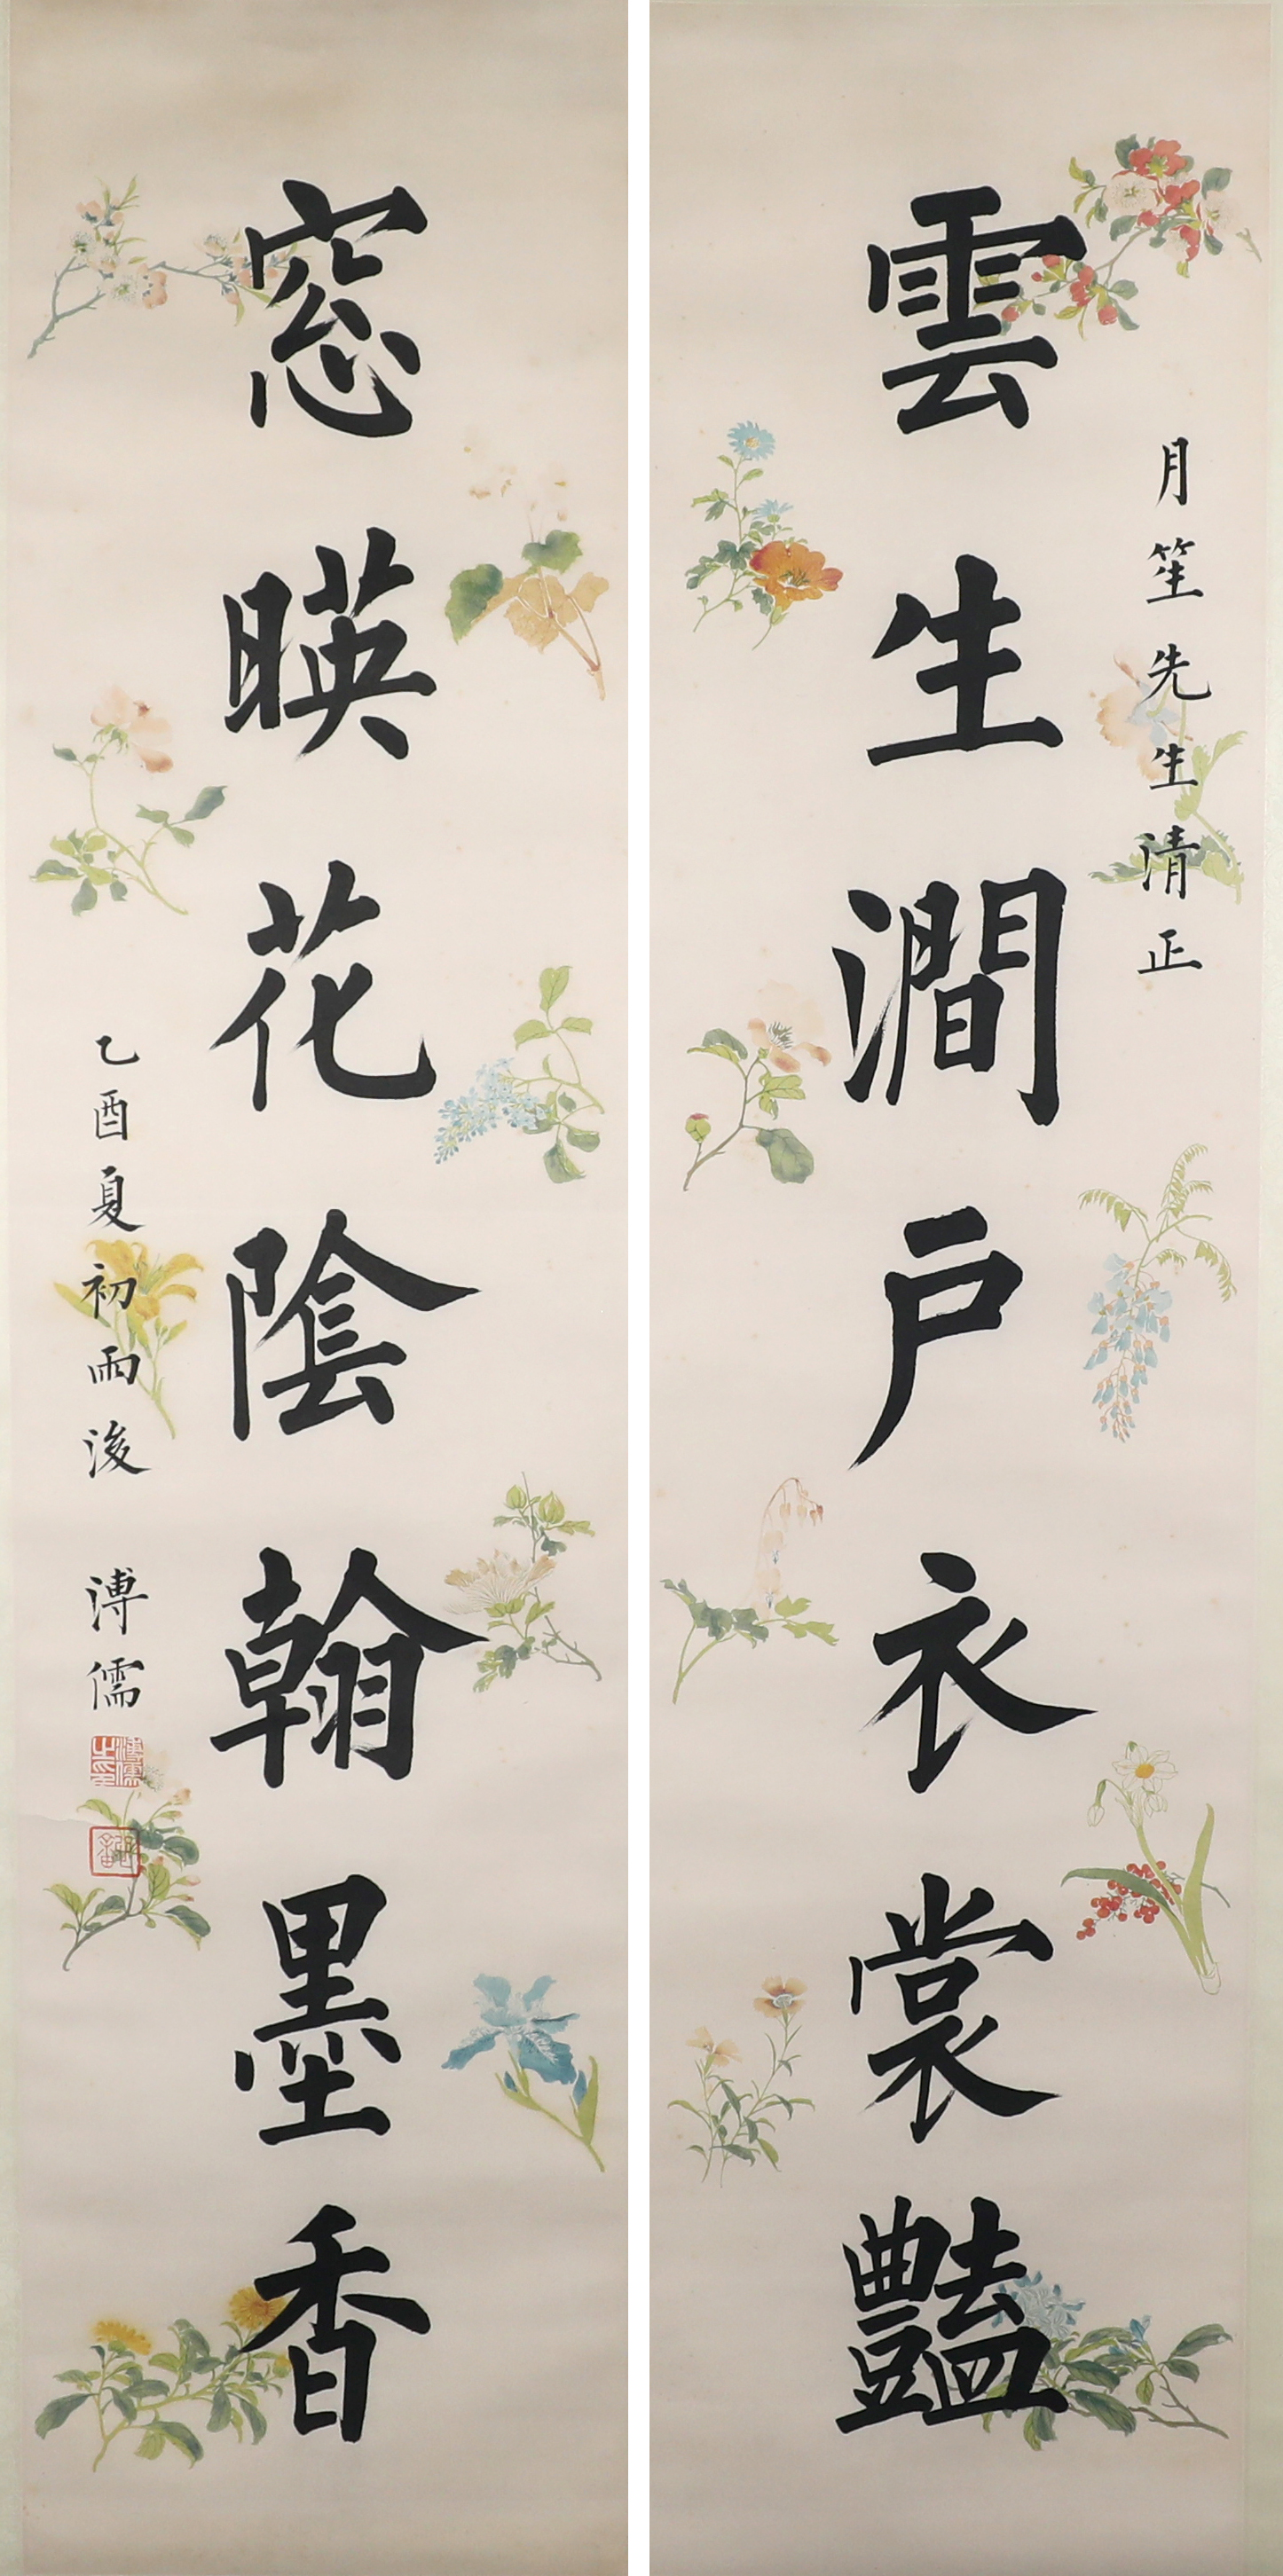 雲生澗戶衣裳豔
月笙先生清正
窓暎花陰翰墨香
乙酉夏初雨後 溥儒
溥儒之印